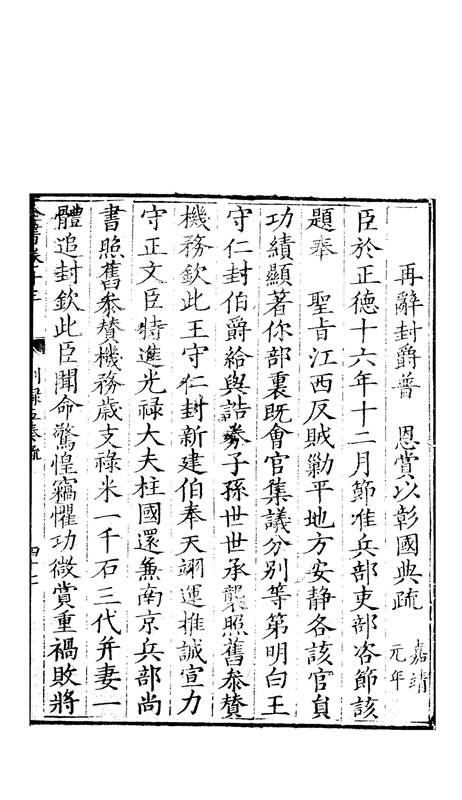 再辭封爵普　恩賞以彰國典疏 嘉靖元年
臣於正德十六年十二月節准兵部吏部咨節該
題奉　聖旨江西反賊勦平地方安靜各該官員
功績顯著你部裏既會官集議分別等第明白王
守仁封伯爵給與誥券子孫世世承襲照舊叅贊
機務欽此王守仁封新建伯奉天翊運推誠宣力
守正文臣特進光祿大夫柱國還兼南京兵部尚
書照舊叅贊機務歲支祿米一千石三代并妻一
體追封欽此臣聞命驚惶竊懼功微賞重禍敗將
全書卷十三 別錄五奏疏